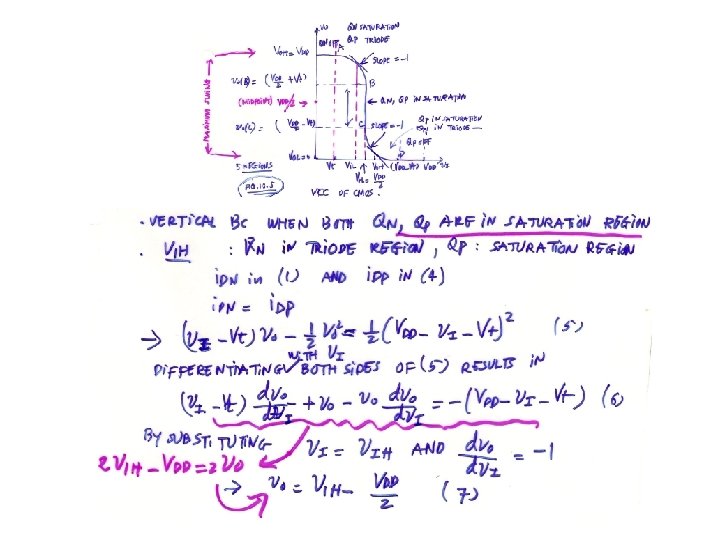 Vo
QN SATURATION
QN OFF A QP TRIODE
VOH = VDD
SLOPE = -1
Vo(B) = (VDD/2 + Vt)
B
(MIDPOINT) VDD/2
← QN, QP IN SATURATION
MAXIMUM SWING
Vo(C) = (VDD/2 - Vt)
C SLOPE = -1
QP IN SATURATION
QN IN TRIODE
QP OFF
VOL = 0
5 REGIONS
Vt VIL VIH (VDD-Vt) VDD VI
VDD/2
FIG. 10.5
VTC OF CMOS.
. VERTICAL BC WHEN BOTH QN, QP ARE IN SATURATION REGION
. VIH : QN IN TRIODE REGION, QP : SATURATION REGION
iDN in (1) AND iDP IN (4)
iDN = iDP
→ (VI - Vt) Vo - 1/2 Vo² = 1/2 (VDD - VI - Vt)² (5)
WITH VI
DIFFERENTIATING BOTH SIDES OF (5) RESULTS IN
(VI - Vt) dVo/dVI + Vo - Vo dVo/dVI = -(VDD - VI - Vt) (6)
BY SUBSTITUTING VI = VIH AND dVo/dVI = -1
2VIH - VDD = 2Vo
→ Vo = VIH - VDD/2 (7)